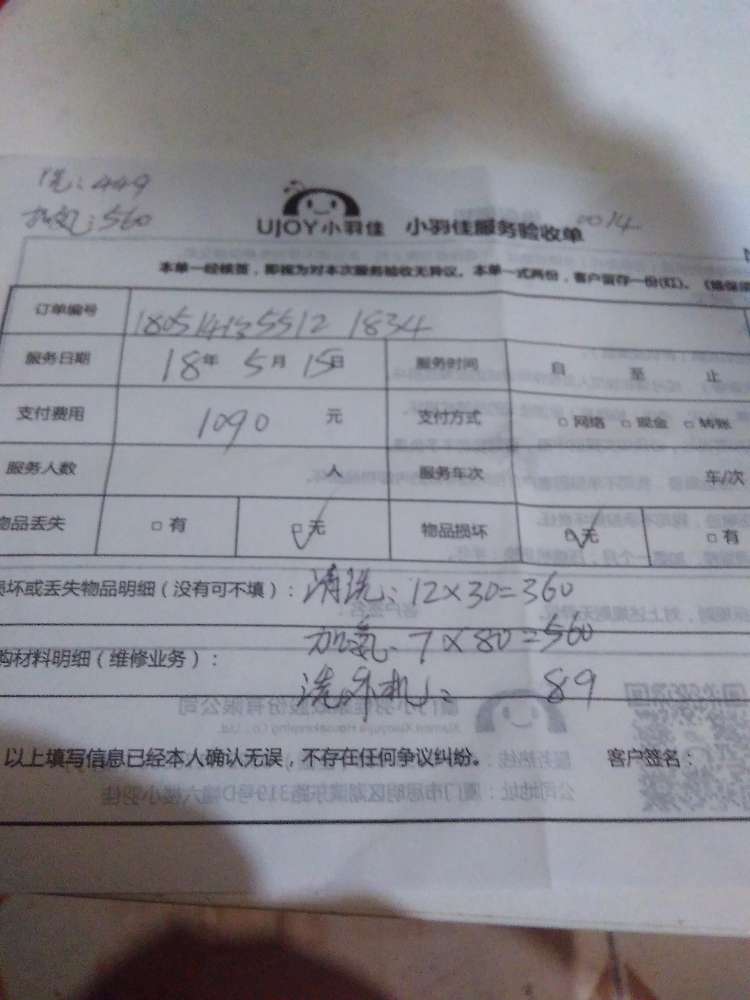 洗:449
加氟:560
UJOY小羽佳 小羽佳服务验收单 0014
本单一经核签,即视为对本次服务验收无异议。本单一式两份,客户留存一份(红)。
订单编号 180514135512 1834
服务日期 18年 5月 15日 服务时间 自 至 止
支付费用 1090 元 支付方式 □网络 □现金 □转账
服务人数 人 服务车次 车/次
物品丢失 □有 □无 物品损坏 □无 □有
损坏或丢失物品明细(没有可不填): 清洗:12×30=360
加氟:7×80=560
购材料明细(维修业务):
洗外机: 89
以上填写信息已经本人确认无误,不存在任何争议纠纷。 客户签名: